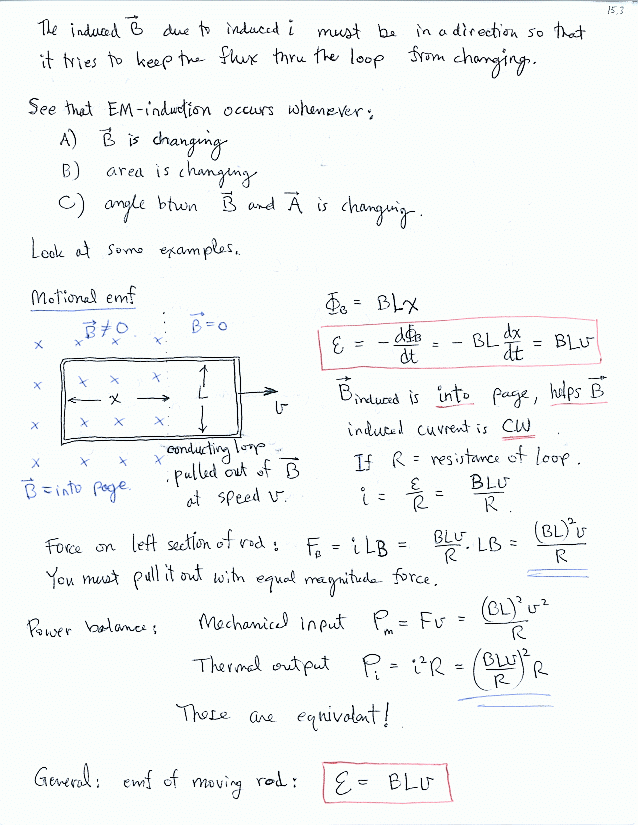 15.3
The induced B⃗ due to induced i must be in a direction so that
it tries to keep the flux thru the loop from changing.
See that EM-induction occurs whenever:
A) B⃗ is changing
B) area is changing
C) angle btwn B⃗ and A⃗ is changing.
Look at some examples.
Motional emf
B⃗≠0 B⃗=0
x x x x
x x x x
x
L
v
x x x x
x x x x
conducting loop
pulled out of B⃗
at speed v.
B⃗ = into page.
Φ_B = BLx
ℰ = -dΦ_B/dt = -BL dx/dt = BLv
B⃗induced is into page, helps B⃗
induced current is CW
If R = resistance of loop.
i = ℰ/R = BLv/R
Force on left section of rod: F_B = iLB = BLv/R · LB = (BL)²v/R
You must pull it out with equal magnitude force.
Power balance: Mechanical input P_m = Fv = (BL)²v²/R
Thermal output P_i = i²R = (BLv/R)²R
These are equivalent!
General: emf of moving rod: ℰ = BLv